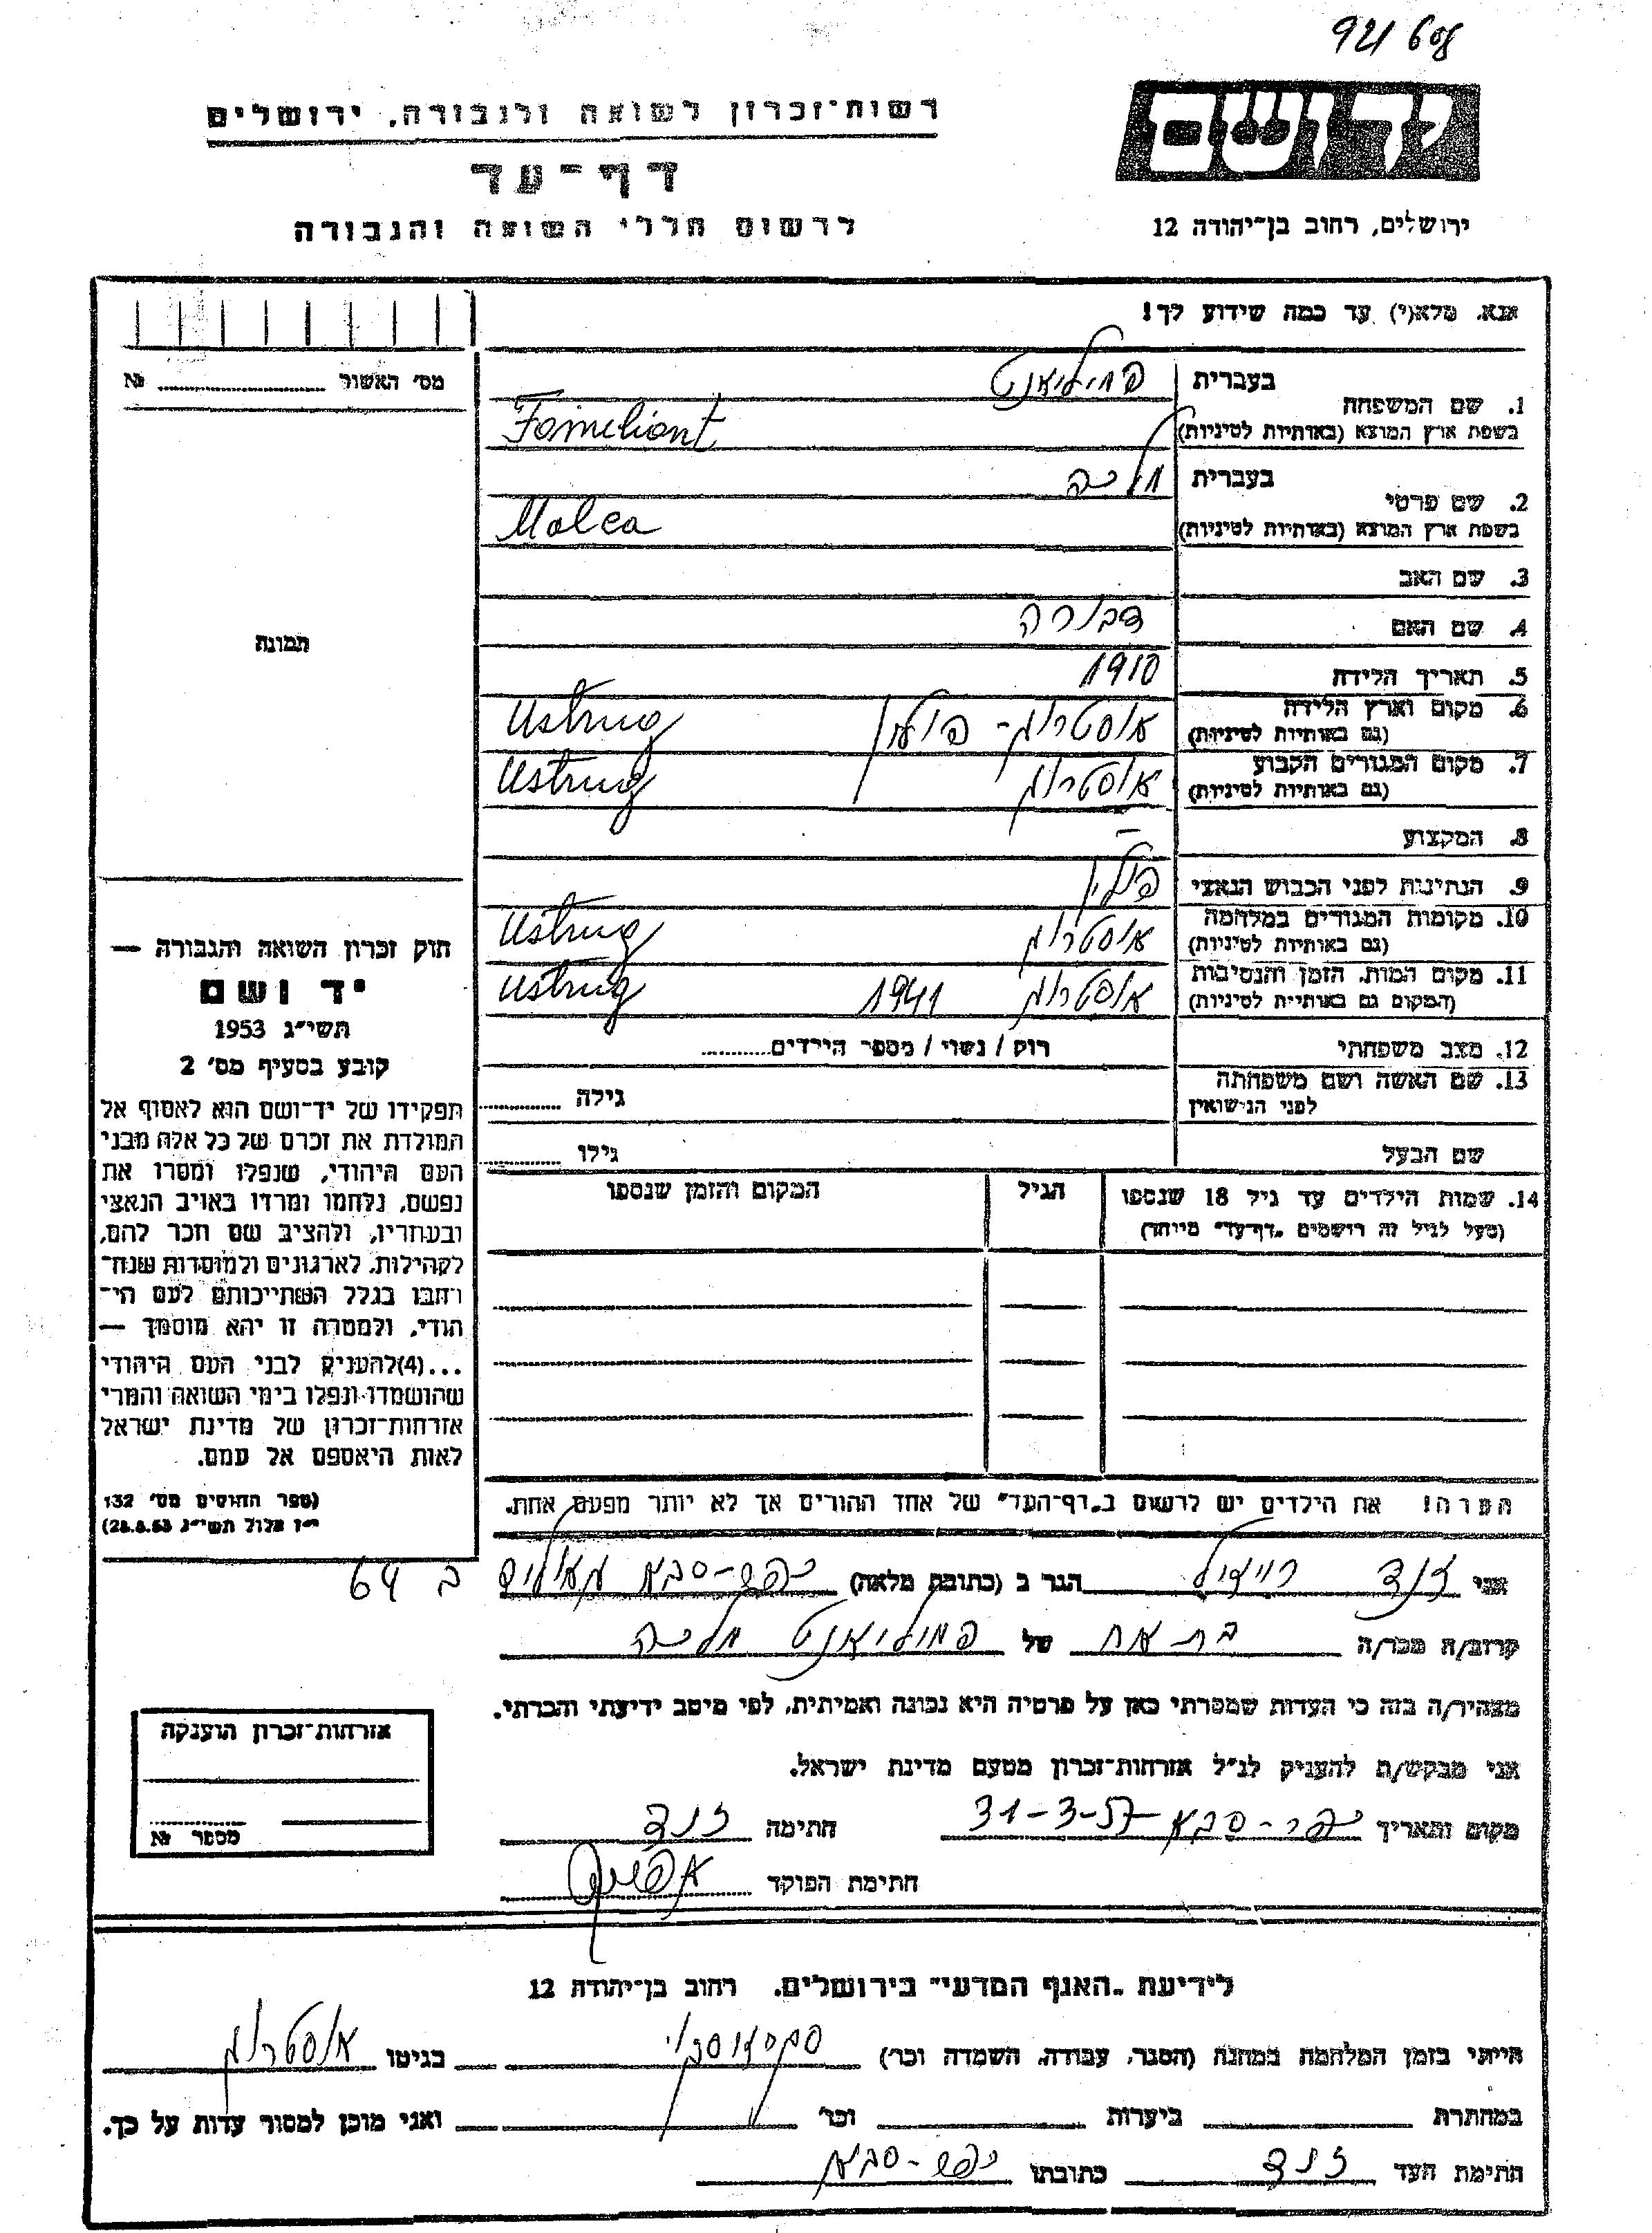 921
רשות־זכרון לשואה ולגבורה, ירושלים
דף־עד
לרשום חללי השואה והגבורה
יד ושם
ירושלים, רחוב בן־יהודה 12
אנא, מלא(י) עד כמה שידוע לך!
מס׳ האשור № ........
1. שם המשפחה בעברית פמיליאנט
בשפת ארץ המוצא (באותיות לטיניות) Fameliant
2. שם פרטי בעברית מלכה
בשפת ארץ המוצא (באותיות לטיניות) Malca
3. שם האב
4. שם האם דבורה
תמונה
5. תאריך הלידה 1910
6. מקום וארץ הלידה (גם באותיות לטיניות) אוסטרוג - פולין Ustrug
7. מקום המגורים הקבוע (גם באותיות לטיניות) אוסטרוג Ustrug
8. המקצוע —
9. הנתינות לפני הכבוש הנאצי פולין
10. מקומות המגורים במלחמה (גם באותיות לטיניות) אוסטרוג Ustrug
11. מקום המות, הזמן והנסיבות (המקום גם באותיות לטיניות) אוסטרוג 1941 Ustrug
12. מצב משפחתי רוק / נשוי / מספר הילדים........
13. שם האשה ושם משפחתה לפני הנישואין גילה ........
שם הבעל גילו ........
14. שמות הילדים עד גיל 18 שנספו הגיל המקום והזמן שנספו
(מעל לגיל זה רושמים „דף־עד" מיוחד)
חוק זכרון השואה והגבורה —
יד ושם
תשי״ג 1953
קובע בסעיף מס׳ 2
תפקידו של יד־ושם הוא לאסוף אל
המולדת את זכרם של כל אלה מבני
העם היהודי, שנפלו ומסרו את
נפשם, נלחמו ומרדו באויב הנאצי
ובעוזריו, ולהציב שם וזכר להם,
לקהילות, לארגונים ולמוסדות שנח־
רבו בגלל השתייכותם לעם היי־
הודי, ולמטרה זו יהא מוסמך —
...(4)להעניק לבני העם היהודי
שהושמדו ונפלו בימי השואה והמרי
אזרחות־זכרון של מדינת ישראל
לאות היאספם אל עמם.
(ספר החוקים מס׳ 132
י״ז אלול תשי״ג 28.8.53)
הערה! את הילדים יש לרשום ב„דף־העד" של אחד ההורים אך לא יותר מפעם אחת.
אני זנד הגר ב (כתובת מלאה) כפר-סבא ב 64
קרוב/ה מכר/ה בת אח של פמיליאנט מלכה
מצהיר/ה בזה כי העדות שמסרתי כאן על פרטיה היא נכונה ואמיתית, לפי מיטב ידיעתי והכרתי.
אני מבקש/ת להעניק לנ״ל אזרחות־זכרון מטעם מדינת ישראל.
מקום ותאריך כפר-סבא 31-3-57 חתימה זנד
חתימת הפוקד
אזרחות־זכרון הוענקה
מספר №
לידיעת „האגף המדעי" בירושלים, רחוב בן־יהודה 12
הייתי בזמן המלחמה במחנה (הסגר, עבודה, השמדה וכו׳) בגיטו אוסטרוג
במחתרת ביערות וכו׳ ואני מוכן למסור עדות על כך.
חתימת העד זנד כתובתו כפר-סבא